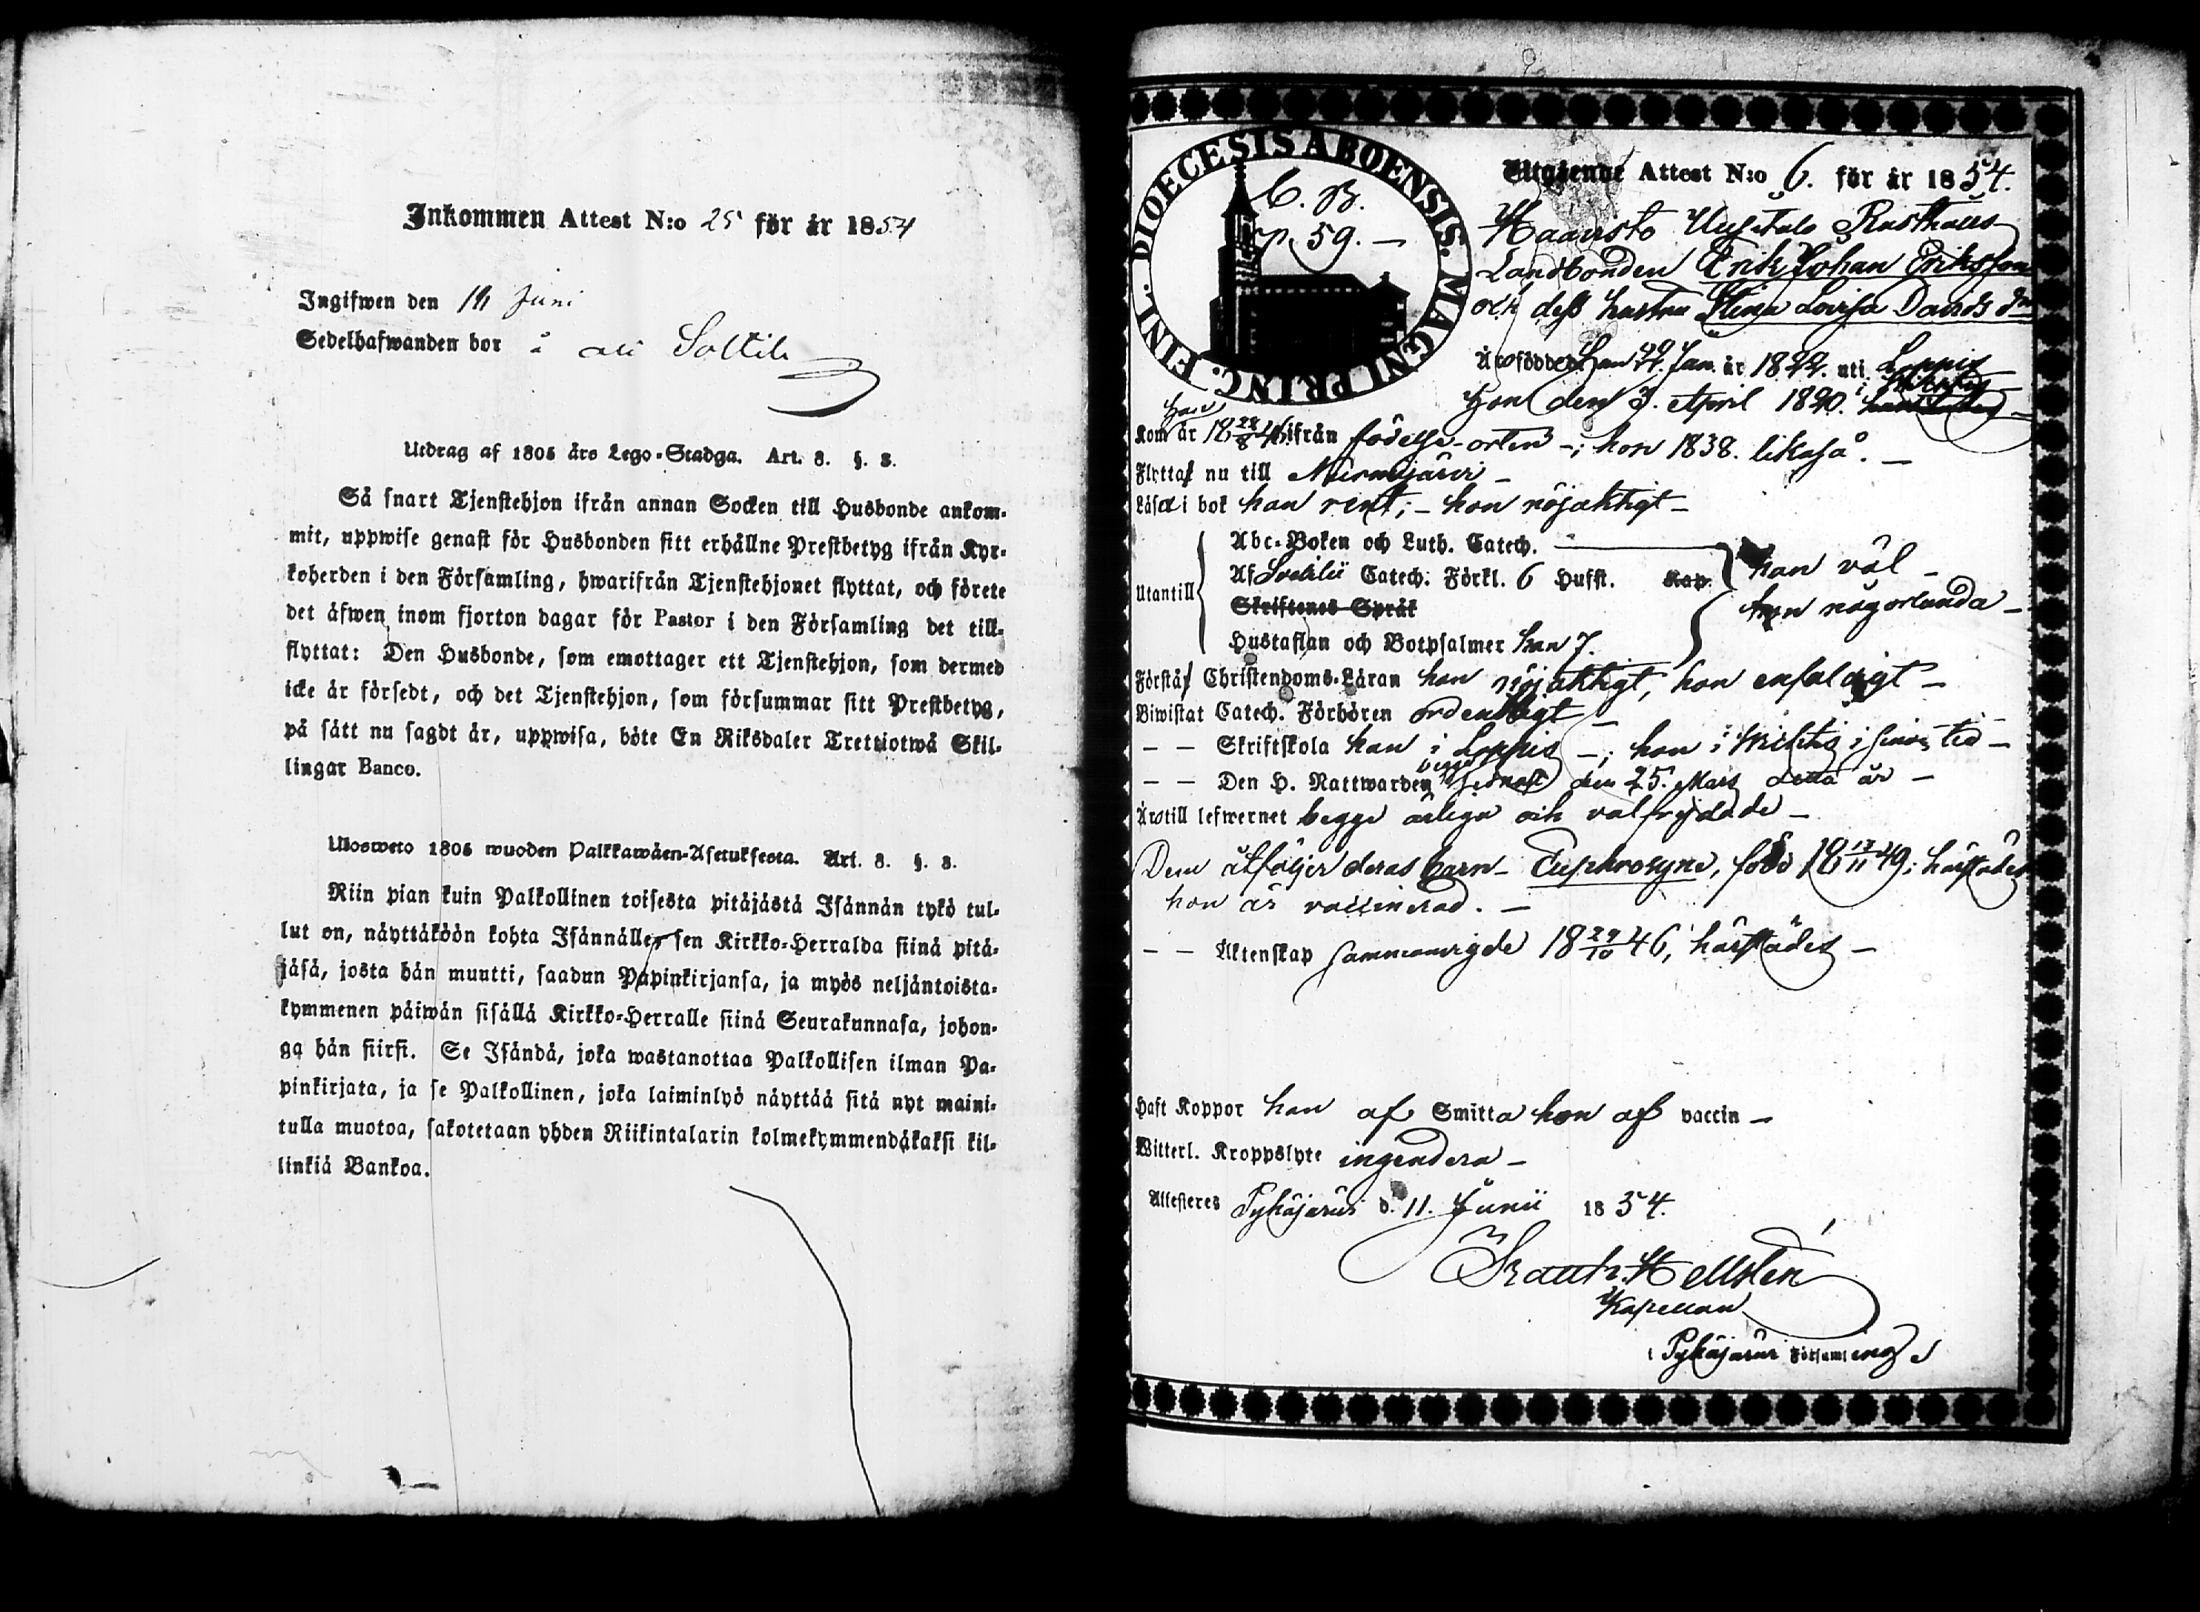 Inkommen Attest N:o 25 för år 1854
Ingifwen den 14 Juni
Sedelhafwanden bor å Ali Solttila
Utdrag af 1805 års Lego-Stadga. Art. 8. §. 8.
Så snart Tjenstehjon ifrån annan Socken till Husbonde ankom-
mit, uppwise genast för Husbonden sitt erhållne Prestbetyg ifrån Kyr-
koherden i den Församling, hwarifrån Tjenstehjonet flyttat, och förete
det äfwen inom fjorton dagar för Pastor i den Församling det till-
flyttat: Den Husbonde, som emottager ett Tjenstehjon, som dermed
icke är försedt, och det Tjenstehjon, som försummar sitt Prestbetyg,
på sätt nu sagdt är, uppwisa, böte En Riksdaler Trettiotwå Skil-
lingar Banco.
Ulosweto 1805 wuoden Palkkawäen-Asetuksesta. Art. 8. §. 8.
Niin pian kuin Palkollinen toisesta pitäjästä Isännän tykö tul-
lut on, näyttäköön kohta Isännälle, sen Kirkko-Herralda siinä pitä-
jäsä, josta hän muutti, saadun Papinkirjansa, ja myös neljäntoista-
kymmenen päiwän sisällä Kirkko-Herralle siinä Seurakunnasa, johon-
ga hän siirsi. Se Isändä, joka wastanottaa Palkollisen ilman Pa-
pinkirjata, ja se Palkollinen, joka laiminlyö näyttää sitä nyt maini-
tulla muotoa, sakotetaan yhden Riikintalarin kolmekymmendäkaksi kil-
linkiä Bankoa.
DIOECESIS ABOENSIS. MAGNI PRINC. FINL.
C. B.
p. 59. —
Utgående Attest N:o 6. för år 1854.
Haavisto Uusitalo Rusthålls
Landbonden Erik Johan Eriksson
och dess hustru Stina Lovisa Davids dr
Äro födde: han 29. Jan. år 1822. uti Loppis
hon den 3. April 1820. i Wichtis
Kom han år 18 28/8 46 ifrån födelse-orten —; hon 1838. likaså. —
Flytta nu till Nurmijärvi —
Läsa i bok han rent; — hon nöjaktigt —
Utantill
Abc-Boken och Luth. Catech. —
Af Svebilii Catech: Förkl. 6 Hufst. Kap.
Skriftenes Språk
Hustaflan och Botpsalmer han 7.
han väl —
hon någorlunda —
Förstå Christendoms-Läran han nöjaktigt, hon enfaldigt —
Biwistat Catech. Förhören ordentligt —
— — Skriftskola han i Loppis —; hon i Wichtis i sinom tid —
— — Den H. Nattwarden begge sednast den 25. Mars detta år —
Äro till lefwernet begge ärliga och välfrejdade —
Dem åtföljer deras barn — Euphrosyne, född 18 12/11 49; härstädes
hon är vaccinerad. —
— — Äktenskap sammanvigde 18 29/10 46, härstädes —
Haft Koppor han af Smitta hon af vaccin —
Witterl. Kroppslyte ingendera —
Attesteres Pyhäjärvi d. 11. Junii 1854.
Hellstén
Kapellan
i Pyhäjärvi Församling